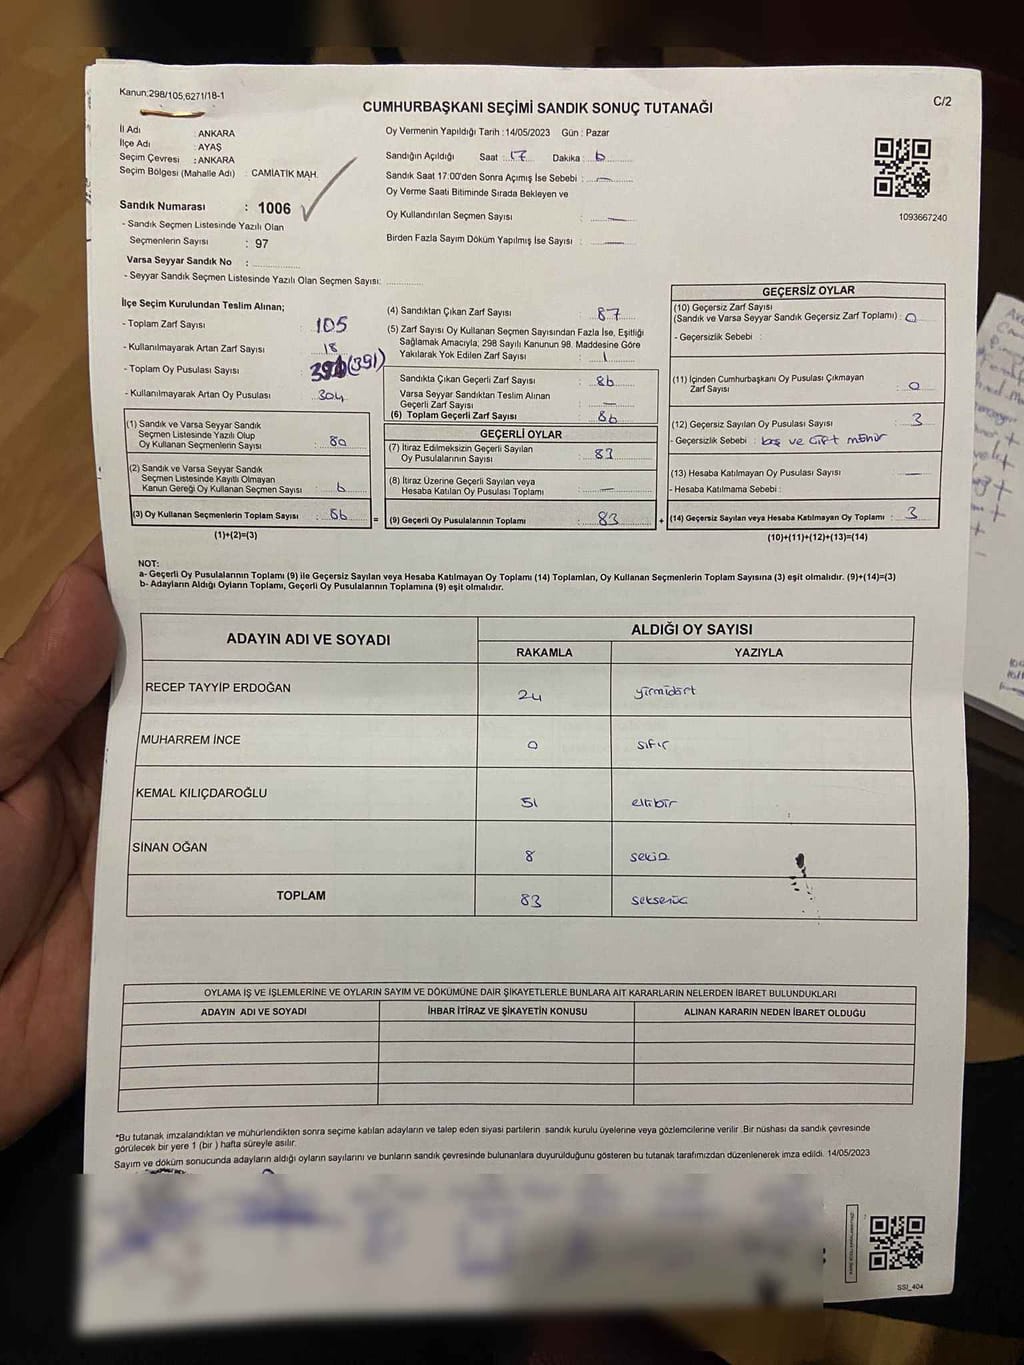 Kanun:298/105,6271/18-1
CUMHURBAŞKANI SEÇİMİ SANDIK SONUÇ TUTANAĞI
C/2
İl Adı : ANKARA
İlçe Adı : AYAŞ
Seçim Çevresi : ANKARA
Seçim Bölgesi (Mahalle Adı) : CAMİATİK MAH.
Sandık Numarası : 1006
- Sandık Seçmen Listesinde Yazılı Olan
Seçmenlerin Sayısı : 97
Varsa Seyyar Sandık No :
- Seyyar Sandık Seçmen Listesinde Yazılı Olan Seçmen Sayısı:
Oy Vermenin Yapıldığı Tarih :14/05/2023 Gün : Pazar
Sandığın Açıldığı Saat : 17 Dakika : 6
Sandık Saat 17:00'den Sonra Açımış İse Sebebi : —
Oy Verme Saati Bitiminde Sırada Bekleyen ve
Oy Kullandırılan Seçmen Sayısı : —
Birden Fazla Sayım Döküm Yapılmış İse Sayısı : —
1093667240
İlçe Seçim Kurulundan Teslim Alınan;
- Toplam Zarf Sayısı : 105
- Kullanılmayarak Artan Zarf Sayısı : 18
- Toplam Oy Pusulası Sayısı : (391)
- Kullanılmayarak Artan Oy Pusulası : 304
(1) Sandık ve Varsa Seyyar Sandık
Seçmen Listesinde Yazılı Olup
Oy Kullanan Seçmenlerin Sayısı : 80
(2) Sandık ve Varsa Seyyar Sandık
Seçmen Listesinde Kayıtlı Olmayan
Kanun Gereği Oy Kullanan Seçmen Sayısı : 6
(3) Oy Kullanan Seçmenlerin Toplam Sayısı : 86
(1)+(2)=(3)
(4) Sandıktan Çıkan Zarf Sayısı : 87
(5) Zarf Sayısı Oy Kullanan Seçmen Sayısından Fazla İse, Eşitliği
Sağlamak Amacıyla, 298 Sayılı Kanunun 98. Maddesine Göre
Yakılarak Yok Edilen Zarf Sayısı : 1
Sandıkta Çıkan Geçerli Zarf Sayısı : 86
Varsa Seyyar Sandıktan Teslim Alınan
Geçerli Zarf Sayısı : —
(6) Toplam Geçerli Zarf Sayısı : 86
GEÇERLİ OYLAR
(7) İtiraz Edilmeksizin Geçerli Sayılan
Oy Pusulalarının Sayısı : 83
(8) İtiraz Üzerine Geçerli Sayılan veya
Hesaba Katılan Oy Pusulası Toplamı : —
= (9) Geçerli Oy Pusulalarının Toplamı : 83
GEÇERSİZ OYLAR
(10) Geçersiz Zarf Sayısı
(Sandık ve Varsa Seyyar Sandık Geçersiz Zarf Toplamı) : 0
- Geçersizlik Sebebi :
(11) İçinden Cumhurbaşkanı Oy Pusulası Çıkmayan
Zarf Sayısı : 0
(12) Geçersiz Sayılan Oy Pusulası Sayısı : 3
- Geçersizlik Sebebi : boş ve çift mühür
(13) Hesaba Katılmayan Oy Pusulası Sayısı : —
- Hesaba Katılmama Sebebi :
+ (14) Geçersiz Sayılan veya Hesaba Katılmayan Oy Toplamı : 3
(10)+(11)+(12)+(13)=(14)
NOT:
a- Geçerli Oy Pusulalarının Toplamı (9) ile Geçersiz Sayılan veya Hesaba Katılmayan Oy Toplamı (14) Toplamları, Oy Kullanan Seçmenlerin Toplam Sayısına (3) eşit olmalıdır. (9)+(14)=(3)
b- Adayların Aldığı Oyların Toplamı, Geçerli Oy Pusulalarının Toplamına (9) eşit olmalıdır.
ADAYIN ADI VE SOYADI ALDIĞI OY SAYISI
RAKAMLA YAZIYLA
RECEP TAYYİP ERDOĞAN 24 yirmidört
MUHARREM İNCE 0 sıfır
KEMAL KILIÇDAROĞLU 51 ellibir
SİNAN OĞAN 8 sekiz
TOPLAM 83 seksenüç
OYLAMA İŞ VE İŞLEMLERİNE VE OYLARIN SAYIM VE DÖKÜMÜNE DAİR ŞİKAYETLERLE BUNLARA AİT KARARLARIN NELERDEN İBARET BULUNDUKLARI
ADAYIN ADI VE SOYADI İHBAR İTİRAZ VE ŞİKAYETİN KONUSU ALINAN KARARIN NEDEN İBARET OLDUĞU
*Bu tutanak imzalandıktan ve mühürlendikten sonra seçime katılan adayların ve talep eden siyasi partilerin sandık kurulu üyelerine veya gözlemcilerine verilir. Bir nüshası da sandık çevresinde
görülecek bir yere 1 (bir ) hafta süreyle asılır.
Sayım ve döküm sonucunda adayların aldığı oyların sayılarını ve bunların sandık çevresinde bulunanlara duyurulduğunu gösteren bu tutanak tarafımızdan düzenlenerek imza edildi. 14/05/2023
SSI_404